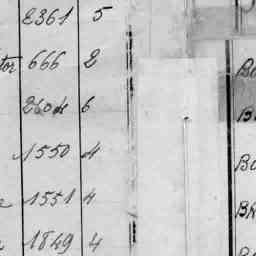 2361 5
tor 666 2 Bo
2604 6 B
1550 4 Bo
1551 4 BR
1849 4 B